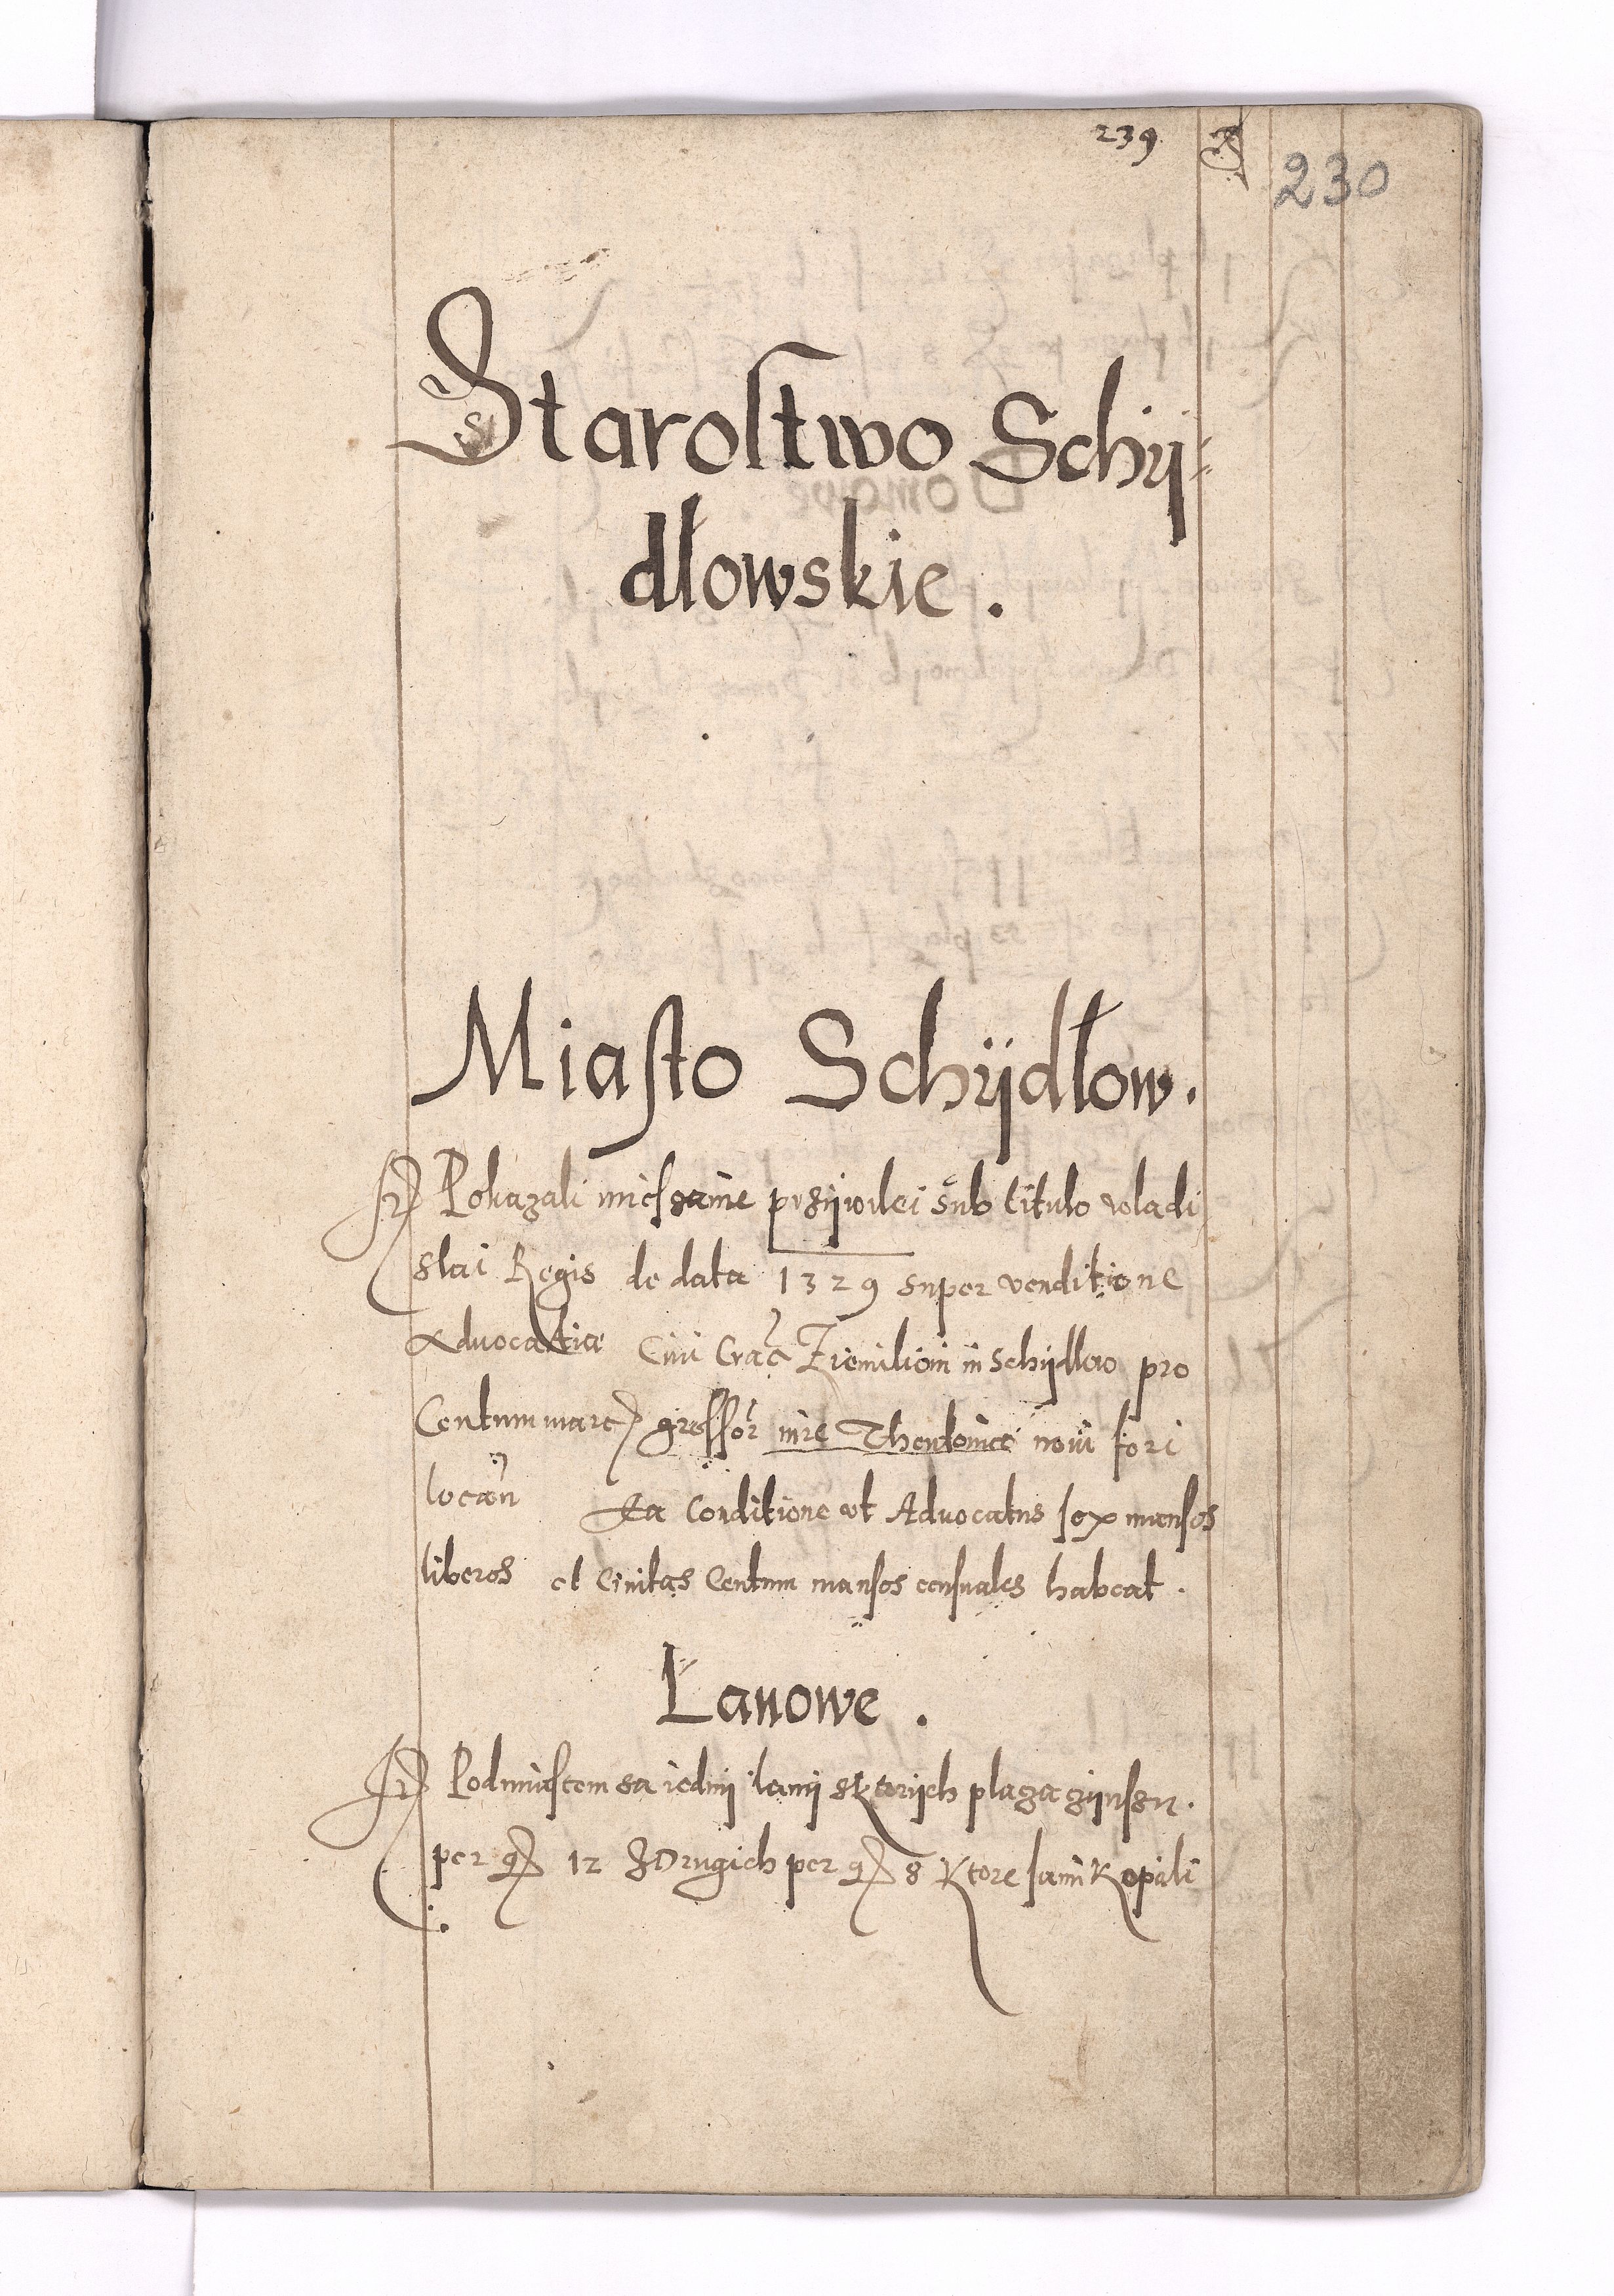 239
230
Staroſtwo Schÿ=
dłowskie.
Miaſto Schÿdłow.
Pokazali mieſzanie przÿwilei sub titulo vladi
slai Regis de data 1329 super venditione
Advocatiæ Ciui Crac Ziemilioni in Schÿdlow pro
Centum marc groſſor iure Theutonico noui fori
locan Ea Conditione vt Advocatus ſex manſos
liberos et Ciuitas Centum manſos cenſuales habeat.
Łanowe.
Pod miaſtem sa iednÿ łanÿ s ktorÿch placza czÿnſzu.
per 12 z Drugich per 8 Ktore ſami Kopali